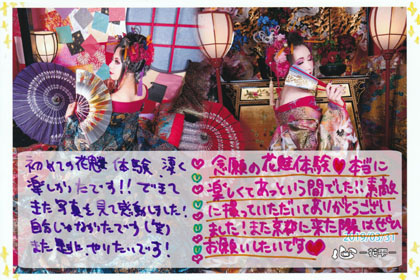 初めての花魁体験、凄く
楽しかったです!!できて
また写真を見て感動しました!
自分じゃなかったです(笑)
また別にやりたいです!
念願の花魁体験♥本当に
楽しくてあっという間でした!!素敵
に撮っていただいてありがとうござい
ました!また京都に来た際はぜひ
お願いしたいです♥
2019/03/31
心 -花雫-